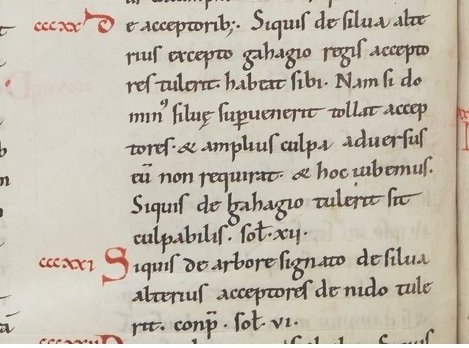 cccxx De acceptorib;. Siquis de silua alte
rius excepto gahagio regis accepto
res tulerit. habeat sibi. Nam si do
minꝰ siluę supuenerit tollat accep
tores. & amplius culpa aduersus
eū non requirat. & hoc iubemus.
Siquis de gahagio tulerit sit
culpabilis. sol̄. xii.
cccxxi Siquis de arbore signato de silua
alterius acceptores de nido tule
rit. conp̄. sol̄. vi.